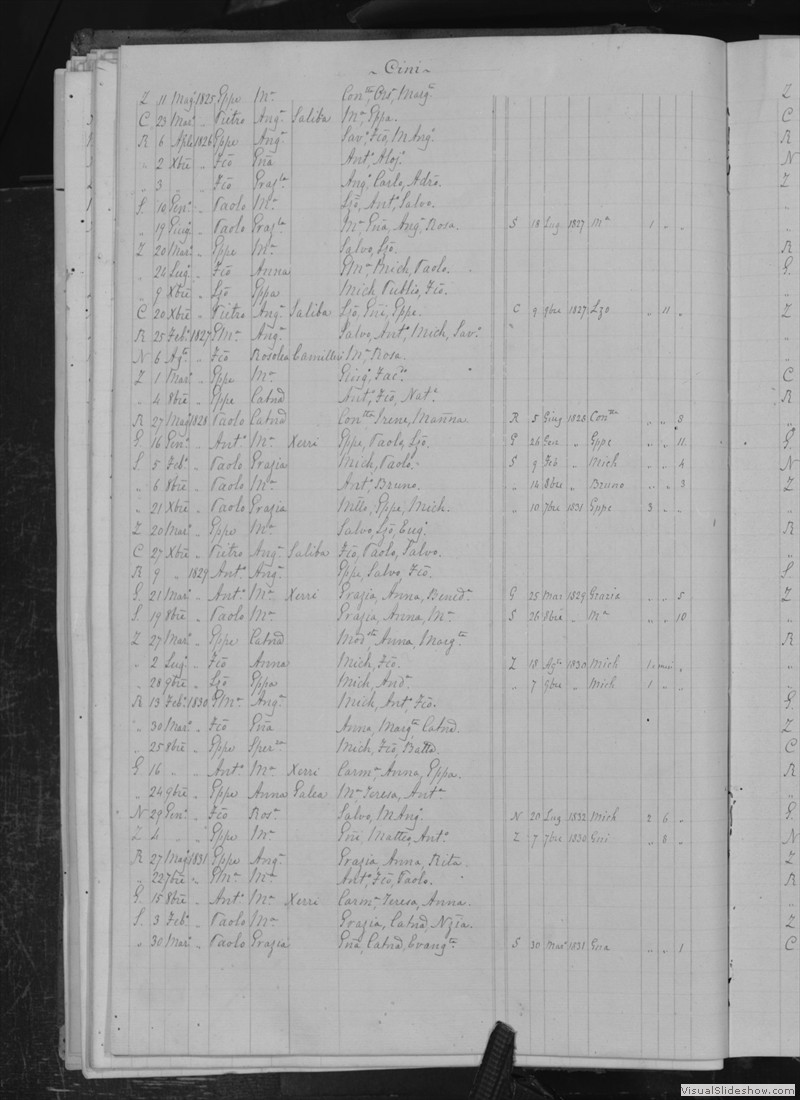 Cini
Z 11 Mag 1825 Eppe Mª Conᵗᵃ, Ors, Margᵃ
C 23 Marº „ Pietro Angª Saliba Mª Eppa.
R 6 Aple 1826 Eppe Angª Savº Fcō, M Angº
„ 2 Xbre „ Fcō Ena Antº Aloỹ
„ 3 „ „ Fcō Grazª Angº Carlo, Adrō.
S. 10 Genº „ Paolo Mª Ljō, Antº Salvo.
„ 19 Giug. „ Paolo Grazª Mª Ena, Angª Rosa. S 18 Lug 1827 Mª 1 „ „
Z 20 Marº „ Eppe Mª Salvo, Ljō.
„ 24 Lug. „ Fcō Anna EMª Mich, Paolo.
„ 9 Xbre „ Ljō Eppa Mich Publio, Fcō.
C 20 Xbre „ Pietro Angª Saliba Ljō, Eñi, Eppe. C 9 9bre 1827 Lzo „ 11 „
R 25 Febº 1827 EMª Angª Salvo, Antº Mich, Savº
N 6 Agᵗᵒ „ Fcō Rosolea Camilleri Mª Rosa.
Z 1 Marº „ Eppe Mª Giugº
„ 4 8bre „ Eppe Catnā Antº, Fcō, Natª
R 27 Mag 1828 Paolo Catnā Conᵗᵃ Irene, Mañna. R 5 Giug 1828 Conᵗᵃ „ „ 8
G. 16 Genº „ Antº Mª Xerri Eppe, Paolo, Ljō. G 26 Gen „ Eppe „ „ 11
S. 5 Febº „ Paolo Grazia Mich, Paolo. S 9 Feb „ Mich „ „ 4
„ 6 8bre „ Paolo Mª Antº Bruno. „ 14 8bre „ Bruno „ „ 3
„ 21 Xbre „ Paolo Grazia Eppe, Mich. „ 10 7bre 1831 Eppe 3 „ „
Z 20 Marº „ Eppe Mª Salvo, Ljō, Eugº
C 27 Xbre „ Pietro Angª Saliba Fcō, Paolo, Salvo.
R 9 „ 1829 Antº Angª Eppe, Salvo, Fcō.
G. 21 Marº „ Antº Mª Xerri Grazia, Anna, Benedª G 25 Mar 1829 Grazia „ „ 5
S. 19 8bre „ Paolo Mª Grazia, Anna, Mª S 26 8bre „ Mª „ „ 10
Z 27 Marº „ Eppe Catnā Anna, Margᵗᵃ
„ 2 Lugº „ Fcō Anna Mich, Fcō. Z 18 Agᵗᵒ 1830 Mich 1
„ 28 9bre „ Ljō Eppa Mich, Andº „ 7 9bre „ Mich 1 „ „
R 13 Febº 1830 EMª Angª Mich, Antº, Fcō.
„ 30 Marº „ Fcō Ena Anna, Margᵗᵃ Catnā.
„ 25 8bre „ Eppe Sperᶻᵃ Mich, Fcō, Batta.
G. 16 „ „ Antº Mª Xerri Carmª Anna, Eppa.
„ 24 9bre „ Eppe Anna Galea Mª Teresa, Antª
N 29 Genº „ Fcō Rosª Salvo, M Angº N 20 Lug 1832 Mich 2 6 „
Z 4 „ „ Eppe Mª Eñi, Matteo, Antº Z 7 7bre 1830 Eni „ 8 „
R 27 Mag 1831 Eppe Angª Grazia Anna, Rita.
„ 22 7bre „ EMª Mª Antº, Fcō, Paolo.
G. 15 8bre „ Antº Mª Xerri Carmª Teresa, Anna.
S. 3 Febº „ Paolo Mª Grazia, Catnā, Nzia.
„ 30 Marº „ Paolo Grazia Ena, Catnā, Evangᵗᵃ S 30 Marº 1831 Ena „ „ 1
VisualSlideshow.com